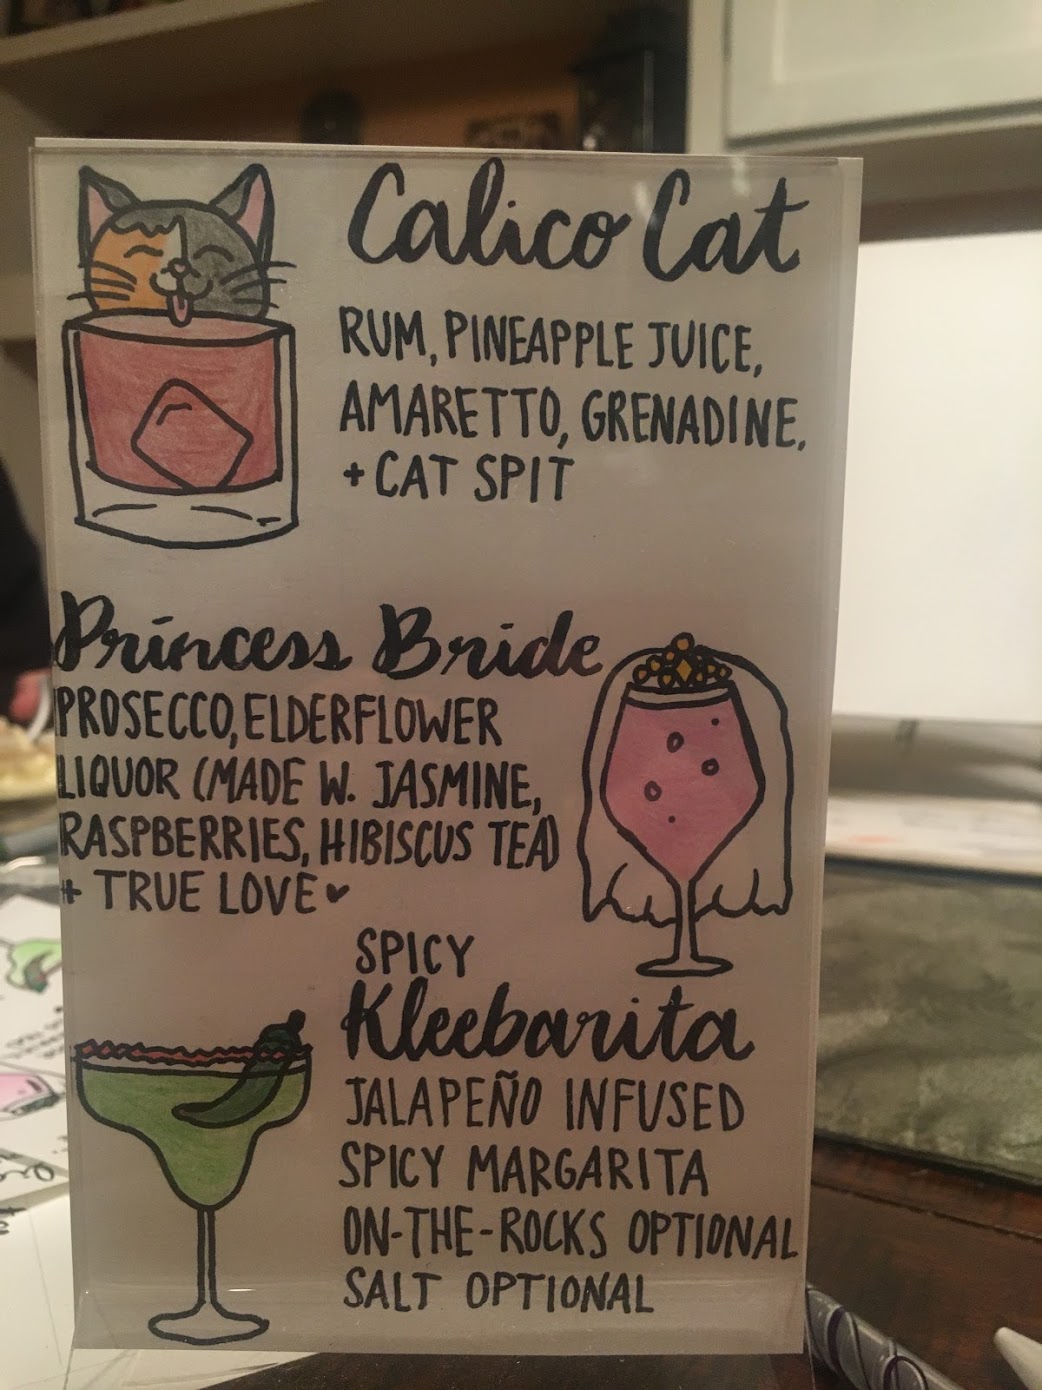 Calico Cat
RUM, PINEAPPLE JUICE,
AMARETTO, GRENADINE,
+ CAT SPIT
Princess Bride
PROSECCO, ELDERFLOWER
LIQUOR (MADE W. JASMINE,
RASPBERRIES, HIBISCUS TEA)
+ TRUE LOVE ♥
SPICY
Kleebarita
JALAPEÑO INFUSED
SPICY MARGARITA
ON-THE-ROCKS OPTIONAL
SALT OPTIONAL